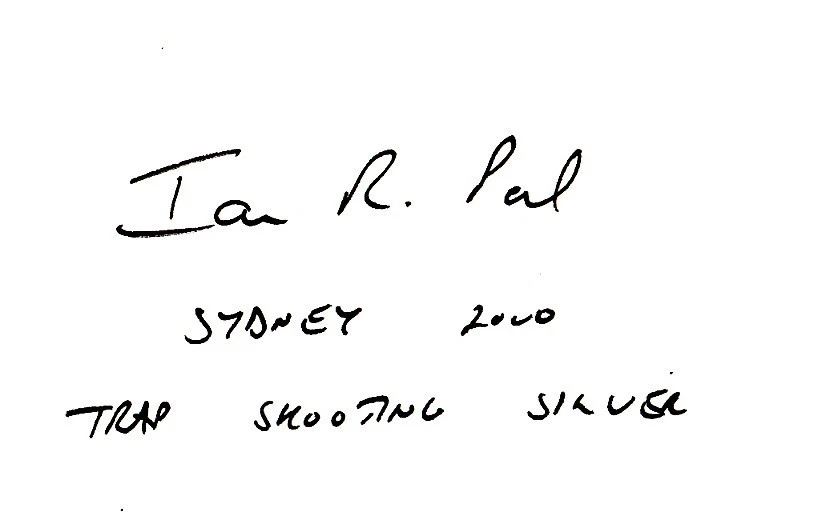 Ian R. Peel
SYDNEY 2000
TRAP SHOOTING SILVER